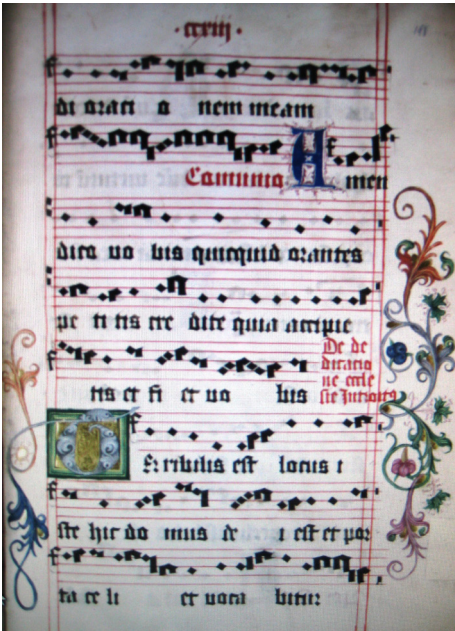 · cxxiij ·
di orati o nem meam
Comunio A men
dico uo bis quicquid orantes
pe ti tis cre dite quia accipie
tis et fi et uo bis
De de
dicatio
ne eccle
sie Introitus
T Erribilis est locus i
ste hic do mus de i est et por
ta ce li et uoca bitur